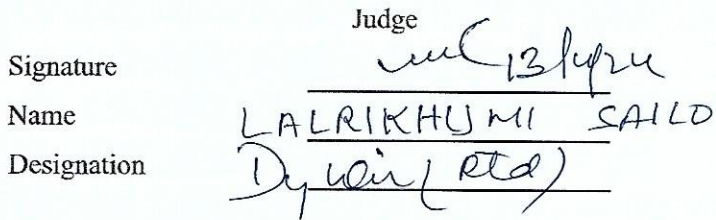 Judge
Signature
Name LALRIKHUMI SAILO
Designation Dy (Rtd)